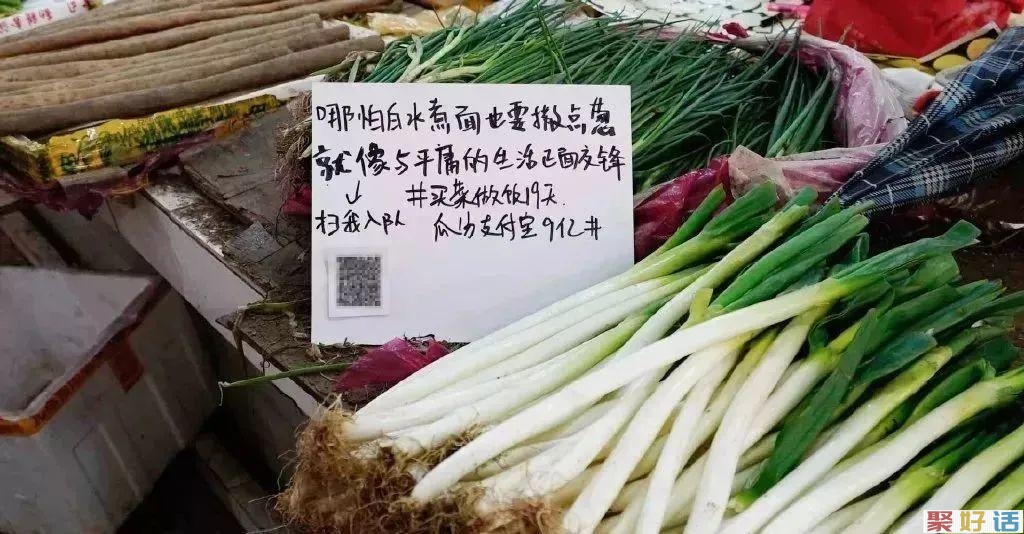 哪怕白水煮面也要撒点葱
就像与平庸的生活正面交锋
#买菜做饭19天
扫我入队
瓜分支付宝9亿#
聚好话